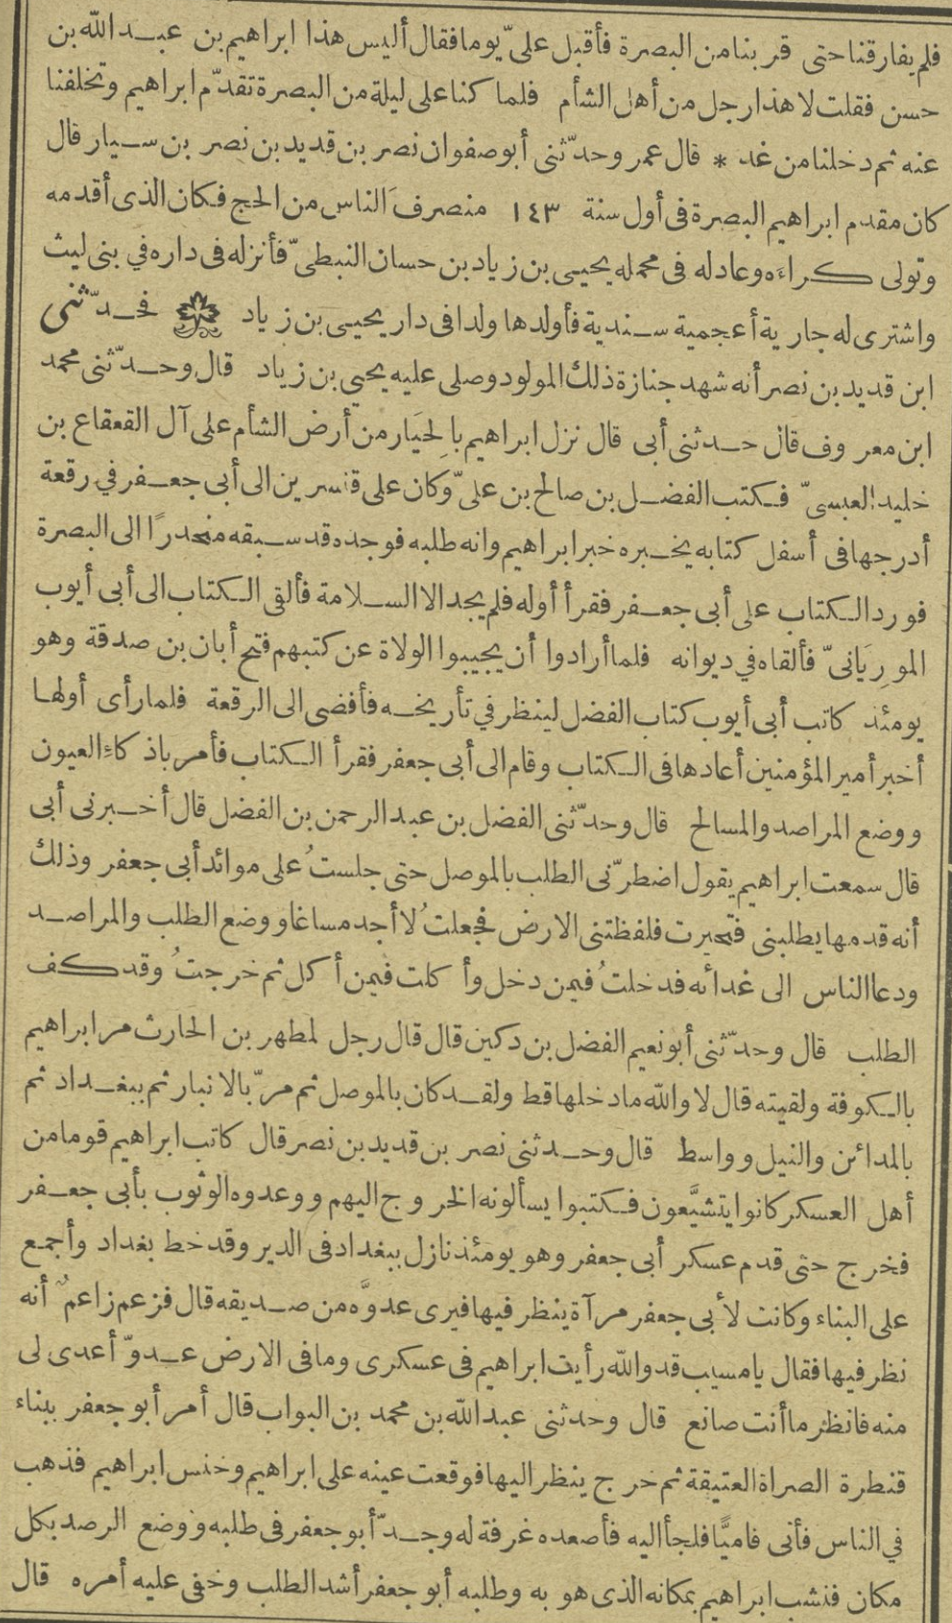 فلم يفارقنا حتى قربنا من البصرة فأقبل علىّ يوما فقال أليس هذا ابراهيم بن عبد الله بن
حسن فقلت لا هذا رجل من أهل الشأم فلما كنا على ليلة من البصرة تقدّم ابراهيم وتخلفنا
عنه ثم دخلنا من غد * قال عمر وحدّثنى أبو صفوان نصر بن قديد بن نصر بن سيار قال
كان مقدم ابراهيم البصرة فى أول سنة ١٤٣ منصرفَ الناس من الحج فكان الذى أقدمه
وتولى كراءه وعادله فى محمله يحيى بن زياد بن حسان النبطىّ فأنزله فى داره في بنى ليث
واشترى له جارية أعجمية سندية فأولدها ولدا فى دار يحيى بن زياد فحدّثنى
ابن قديد بن نصر أنه شهد جنازة ذلك المولود وصلى عليه يحيى بن زياد قال وحدّثنى محمد
ابن معروف قال حدثنى أبى قال نزل ابراهيم بالحِيَار من أرض الشأم على آل القعقاع بن
خليد العبسىّ فكتب الفضل بن صالح بن علىّ وكان على قنسرين الى أبى جعفر في رقعة
أدرجها فى أسفل كتابه يخبره خبر ابراهيم وانه طلبه فوجده قد سبقه منحدرًا الى البصرة
فورد الكتاب على أبى جعفر فقرأ أوله فلم يجد الا السلامة فألقى الكتاب الى أبى أيوب
المورِيَانىّ فألقاه في ديوانه فلما أرادوا أن يجيبوا الولاة عن كتبهم فتح أبان بن صدقة وهو
يومئذ كاتب أبى أيوب كتاب الفضل لينظر في تأريخه فأفضى الى الرقعة فلما رأى أولها
أخبر أمير المؤمنين أعادها فى الكتاب وقام الى أبى جعفر فقرأ الكتاب فأمر باذكاءِ العيون
ووضع المراصد والمسالح قال وحدّثنى الفضل بن عبد الرحمن بن الفضل قال أخبرنى أبى
قال سمعت ابراهيم يقول اضطرّنى الطلب بالموصل حتى جلستُ على موائد أبى جعفر وذلك
أنه قدمها يطلبنى فتحيرت فلفظتنى الارض فجعلتُ لا أجد مساغا ووضع الطلب والمراصد
ودعا الناس الى غدائه فدخلتُ فيمن دخل وأكلت فيمن أكل ثم خرجتُ وقد كف
الطلب قال وحدّثنى أبو نعيم الفضل بن دكين قال قال رجل لمطهر بن الحارث مر ابراهيم
بالكوفة ولقيته قال لا والله ما دخلها قط ولقد كان بالموصل ثم مرّ بالانبار ثم ببغداد ثم
بالمدائن والنيل وواسط قال وحدثنى نصر بن قديد بن نصر قال كاتب ابراهيم قوما من
أهل العسكر كانوا يتشيَّعون فكتبوا يسألونه الخروج اليهم ووعدوه الوثوب بأبى جعفر
فخرج حتى قدم عسكر أبى جعفر وهو يومئذ نازل ببغداد فى الدير وقد خط بغداد وأجمع
على البناء وكانت لأبى جعفر مرآة ينظر فيها فيرى عدوَّه من صديقه قال فزعم زاعمٌ أنه
نظر فيها فقال يا مسيب قد والله رأيت ابراهيم فى عسكرى وما فى الارض عدوّ أعدى لى
منه فانظر ما أنت صانع قال وحدثنى عبد الله بن محمد بن البواب قال أمر أبو جعفر ببناء
قنطرة الصراة العتيقة ثم خرج ينظر اليها فوقعت عينه على ابراهيم وخنس ابراهيم فذهب
في الناس فأتى فاميًّا فلجأ اليه فأصعده غرفة له وجدّ أبو جعفر فى طلبه ووضع الرصد بكل
مكان فنشب ابراهيم بمكانه الذى هو به وطلبه أبو جعفر أشد الطلب وخفى عليه أمره قال